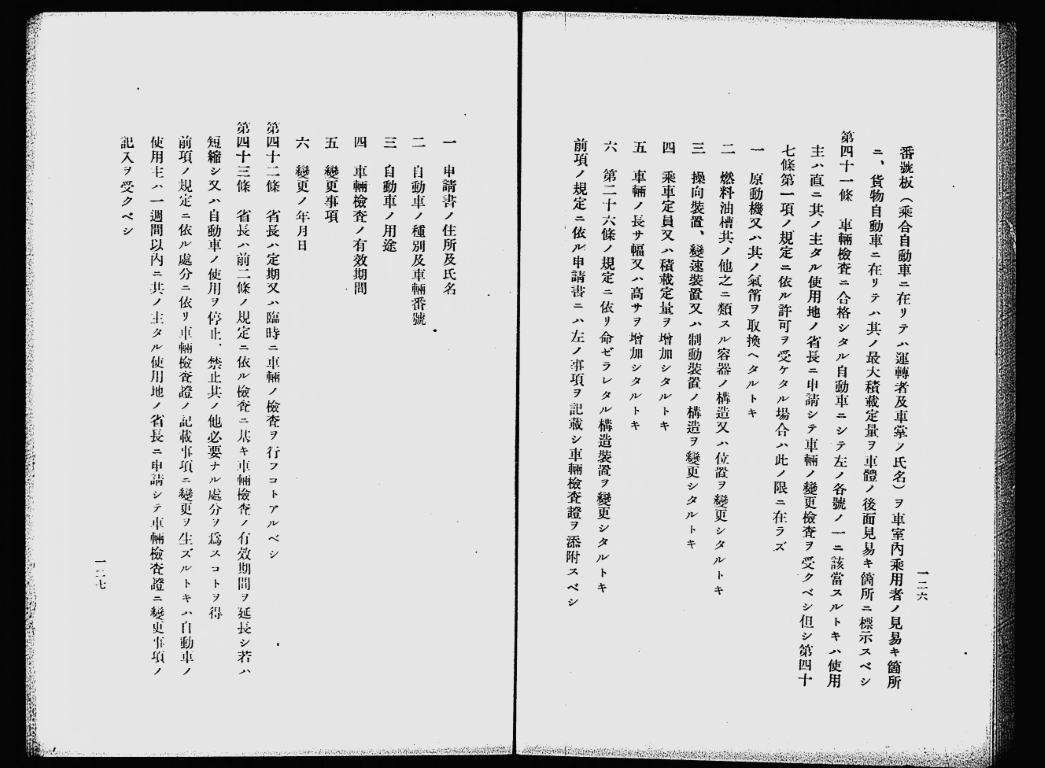 番號板(乘合自動車ニ在リテハ運轉者及車掌ノ氏名)ヲ車室內乘用者ノ見易キ箇所
ニ、貨物自動車ニ在リテハ其ノ最大積載定量ヲ車體ノ後面見易キ箇所ニ標示スベシ
第四十一條 車輛檢査ニ合格シタル自動車ニシテ左ノ各號ノ一ニ該當スルトキハ使用
主ハ直ニ其ノ主タル使用地ノ省長ニ申請シテ車輛ノ變更檢査ヲ受クベシ但シ第四十
七條第一項ノ規定ニ依ル許可ヲ受ケタル場合ハ此ノ限ニ在ラズ
一 原動機又ハ其ノ氣筩ヲ取換ヘタルトキ
二 燃料油槽其ノ他之ニ類スル容器ノ構造又ハ位置ヲ變更シタルトキ
三 操向裝置、變速裝置又ハ制動裝置ノ構造ヲ變更シタルトキ
四 乘車定員又ハ積載定量ヲ增加シタルトキ
五 車輛ノ長サ幅又ハ高サヲ增加シタルトキ
六 第二十六條ノ規定ニ依リ命ゼラレタル構造裝置ヲ變更シタルトキ
前項ノ規定ニ依ル申請書ニハ左ノ事項ヲ記載シ車輛檢査證ヲ添附スベシ
一二六
一 申請書ノ住所及氏名
二 自動車ノ種別及車輛番號
三 自動車ノ用途
四 車輛檢査ノ有效期間
五 變更事項
六 變更ノ年月日
第四十二條 省長ハ定期又ハ臨時ニ車輛ノ檢査ヲ行フコトアルベシ
第四十三條 省長ハ前二條ノ規定ニ依ル檢査ニ基キ車輛檢査ノ有效期間ヲ延長シ若ハ
短縮シ又ハ自動車ノ使用ヲ停止、禁止其ノ他必要ナル處分ヲ爲スコトヲ得
前項ノ規定ニ依ル處分ニ依リ車輛檢査證ノ記載事項ニ變更ヲ生ズルトキハ自動車ノ
使用主ハ一週間以內ニ其ノ主タル使用地ノ省長ニ申請シテ車輛檢査證ニ變更事項ノ
記入ヲ受クベシ
一二七